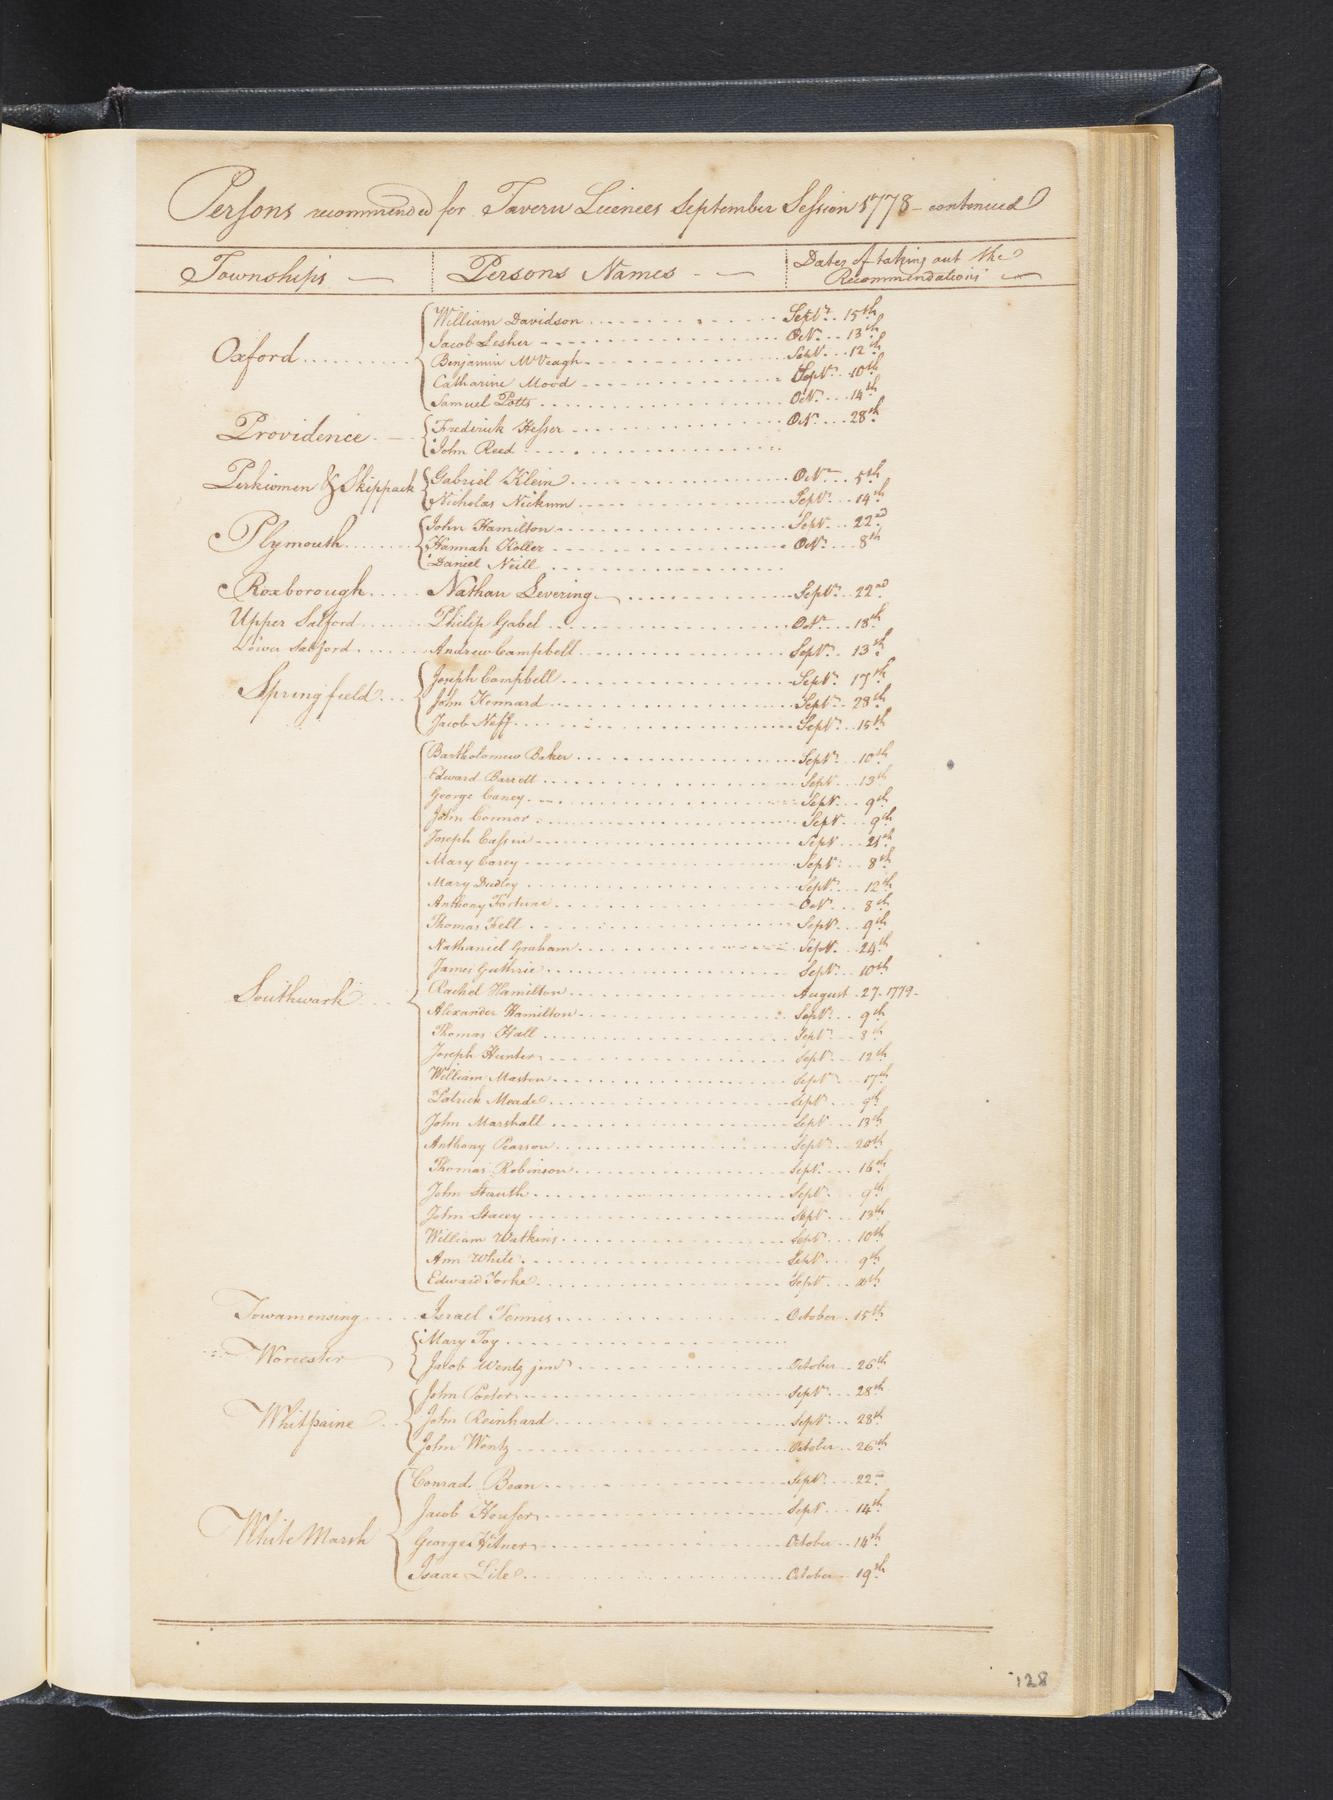 Persons recommended for Tavern Licences September Session 1778 - continued
Townships Persons Names Dates of taking out the
Recommendations
William Davidson Septr. 15th
Jacob Lesher Octr. 13th
Oxford Benjamin McVeagh Septr. 12th
Catharine Mood Septr. 10th
Samuel Potts Octr. 14th
Frederick Hesser Octr. 28th
Providence
John Reed
Perkiomen & Skippack Gabriel Klein Octr. 5th
Nicholas Nickum Septr. 14th
John Hamilton Septr. 22nd
Plymouth Hannah Koller Octr. 8th
Daniel Neill
Roxborough Nathan Levering Septr. 22nd
Upper Salford Philip Gabel Octr. 18th
Lower Salford Andrew Campbell Septr. 13th
Joseph Campbell Septr. 17th
Springfield John Kennard Septr. 28th
Jacob Neff Septr. 15th
Bartholomew Baker Septr. 10th
Edward Barrett Septr. 13th
George Caney Septr. 9th
John Connor Septr. 9th
Joseph Cassin Septr. 21st
Mary Corey Septr. 8th
Mary Dudley Septr. 12th
Anthony Fortune Octr. 8th
Thomas Fell Septr. 9th
Nathaniel Graham Septr. 24th
James Guthrie Septr. 10th
Southwark Rachel Hamilton August 27. 1779.
Alexander Hamilton Septr. 9th
Thomas Hall Septr. 8th
Joseph Hunter Septr. 12th
William Maston Septr. 17th
Patrick Meade Septr. 9th
John Marshall Septr. 13th
Anthony Pearson Septr. 20th
Thomas Robinson Septr. 16th
John Stauth Septr. 9th
John Stacey Septr. 13th
William Watkins Septr. 10th
Ann White Septr. 9th
Edward Yorke Septr.
Towamensing Israel Tennis October 15th
Mary Toy
Worcester
Jacob Wentz junr October 26th
John Porter Septr. 28th
Whitpaine John Reinhard Septr. 28th
John Wentz October 26th
Conrad Bean Septr. 22
Jacob Houser Septr. 14th
White Marsh George Hitner October 14th
Isaac Lile October 19th
128